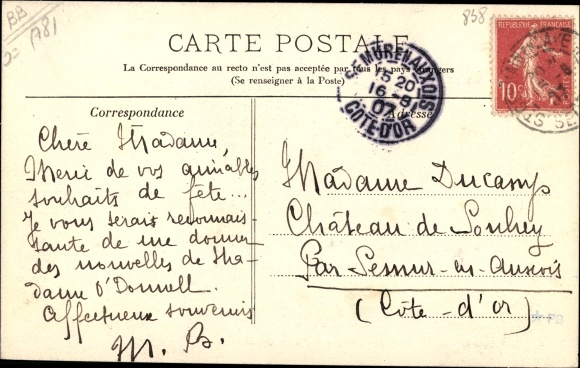 BB
A81
858
CARTE POSTALE
La Correspondance au recto n'est pas acceptée par tous les pays étrangers
(Se renseigner à la Poste)
Correspondance
Adresse
REPUBLIQUE FRANÇAISE
10
SEMUR EN AUXOIS
5 20
16 -8
07
COTE-D'OR
Chère Madame,
Merci de vos aimables
souhaits de fête...
Je vous serais reconnais-
sante de me donner
des nouvelles de Ma-
dame O'Donnell.
Affectueux souvenirs
M. B.
Madame Ducamp
Château de Souhey
Par Semur-en-Auxois
(Côte-d'or)